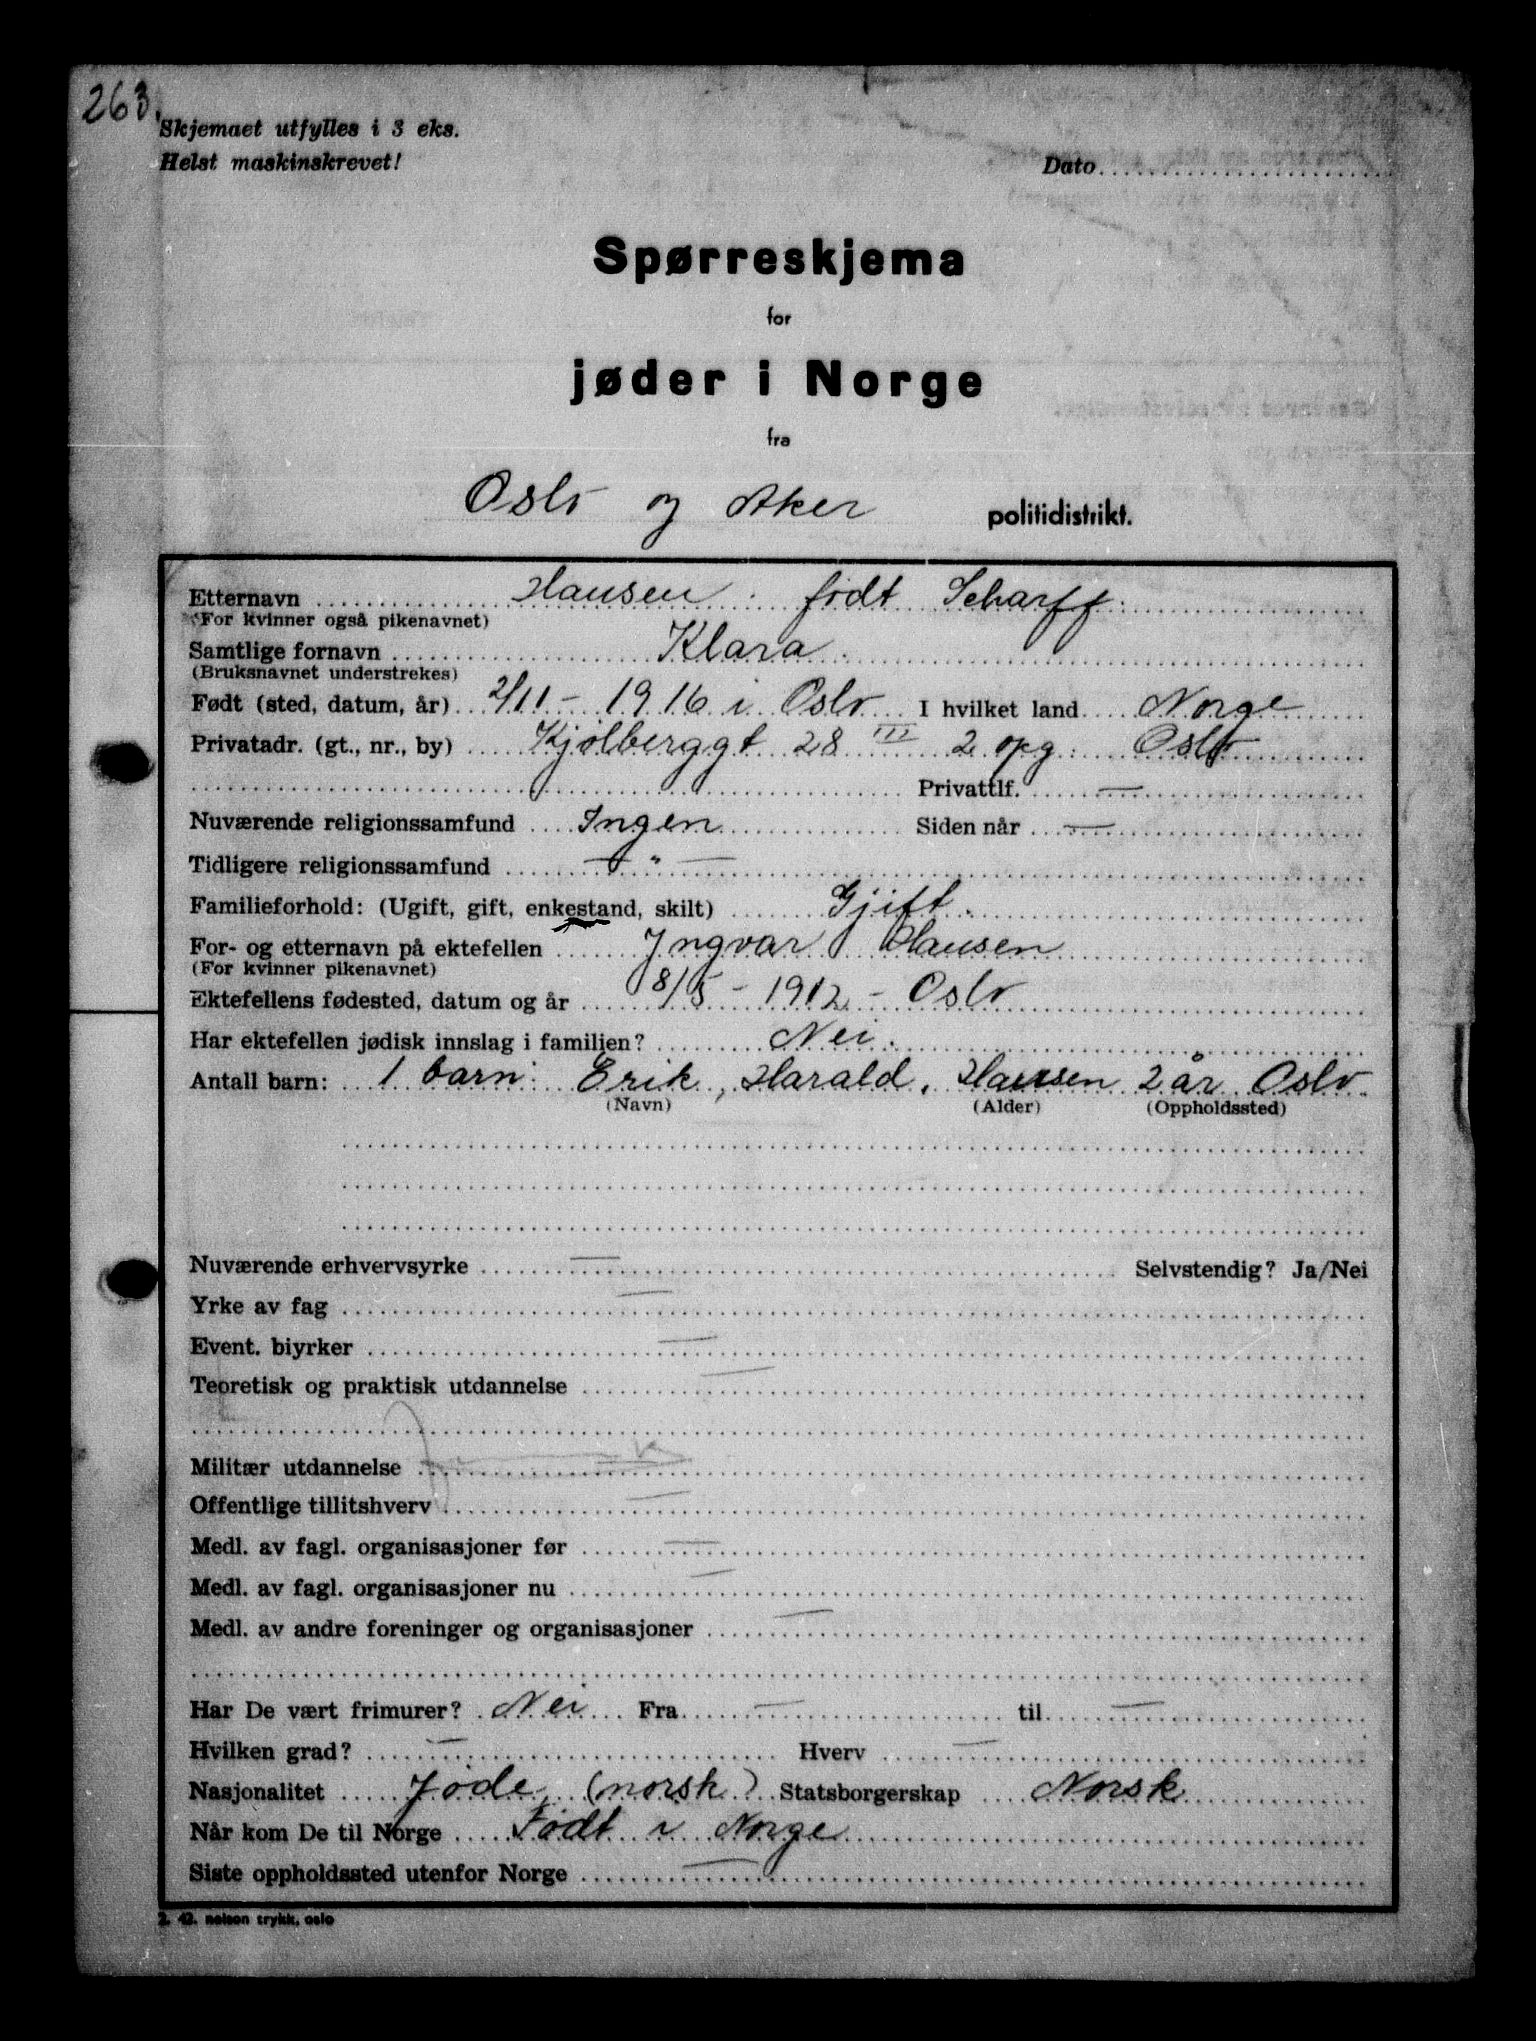 263.
Skjemaet utfylles i 3 eks.
Helst maskinskrevet!
Dato
Spørreskjema
for
jøder i Norge
fra
Oslo og Aker politidistrikt.
Etternavn Hansen født Scharff
(For kvinner også pikenavnet)
Samtlige fornavn Klara
(Bruksnavnet understrekes)
Født (sted, datum, år) 2/11 - 1916 i Oslo I hvilket land Norge
Privatadr. (gt., nr., by) Kjølberggt 28 III 2 opg. Oslo
Privattlf. —
Nuværende religionssamfund Ingen Siden når —
Tidligere religionssamfund — " —
Familieforhold: (Ugift, gift, enkestand, skilt) Gjift.
For- og etternavn på ektefellen Yngvar Hansen
(For kvinner pikenavnet)
Ektefellens fødested, datum og år 8/5 - 1912 - Oslo
Har ektefellen jødisk innslag i familien? Nei.
Antall barn: 1 barn: Erik, Harald, Hansen 2 år Oslo
(Navn) (Alder) (Oppholdssted)
Nuværende erhvervsyrke — Selvstendig? Ja/Nei
Yrke av fag —
Event. biyrker —
Teoretisk og praktisk utdannelse —
Militær utdannelse
Offentlige tillitshverv —
Medl. av fagl. organisasjoner før —
Medl. av fagl. organisasjoner nu —
Medl. av andre foreninger og organisasjoner —
Har De vært frimurer? Nei Fra — til —
Hvilken grad? — Hverv —
Nasjonalitet Jøde, (norsk) Statsborgerskap Norsk
Når kom De til Norge Født i Norge
Siste oppholdssted utenfor Norge —
2. 42. nelson trykk, oslo